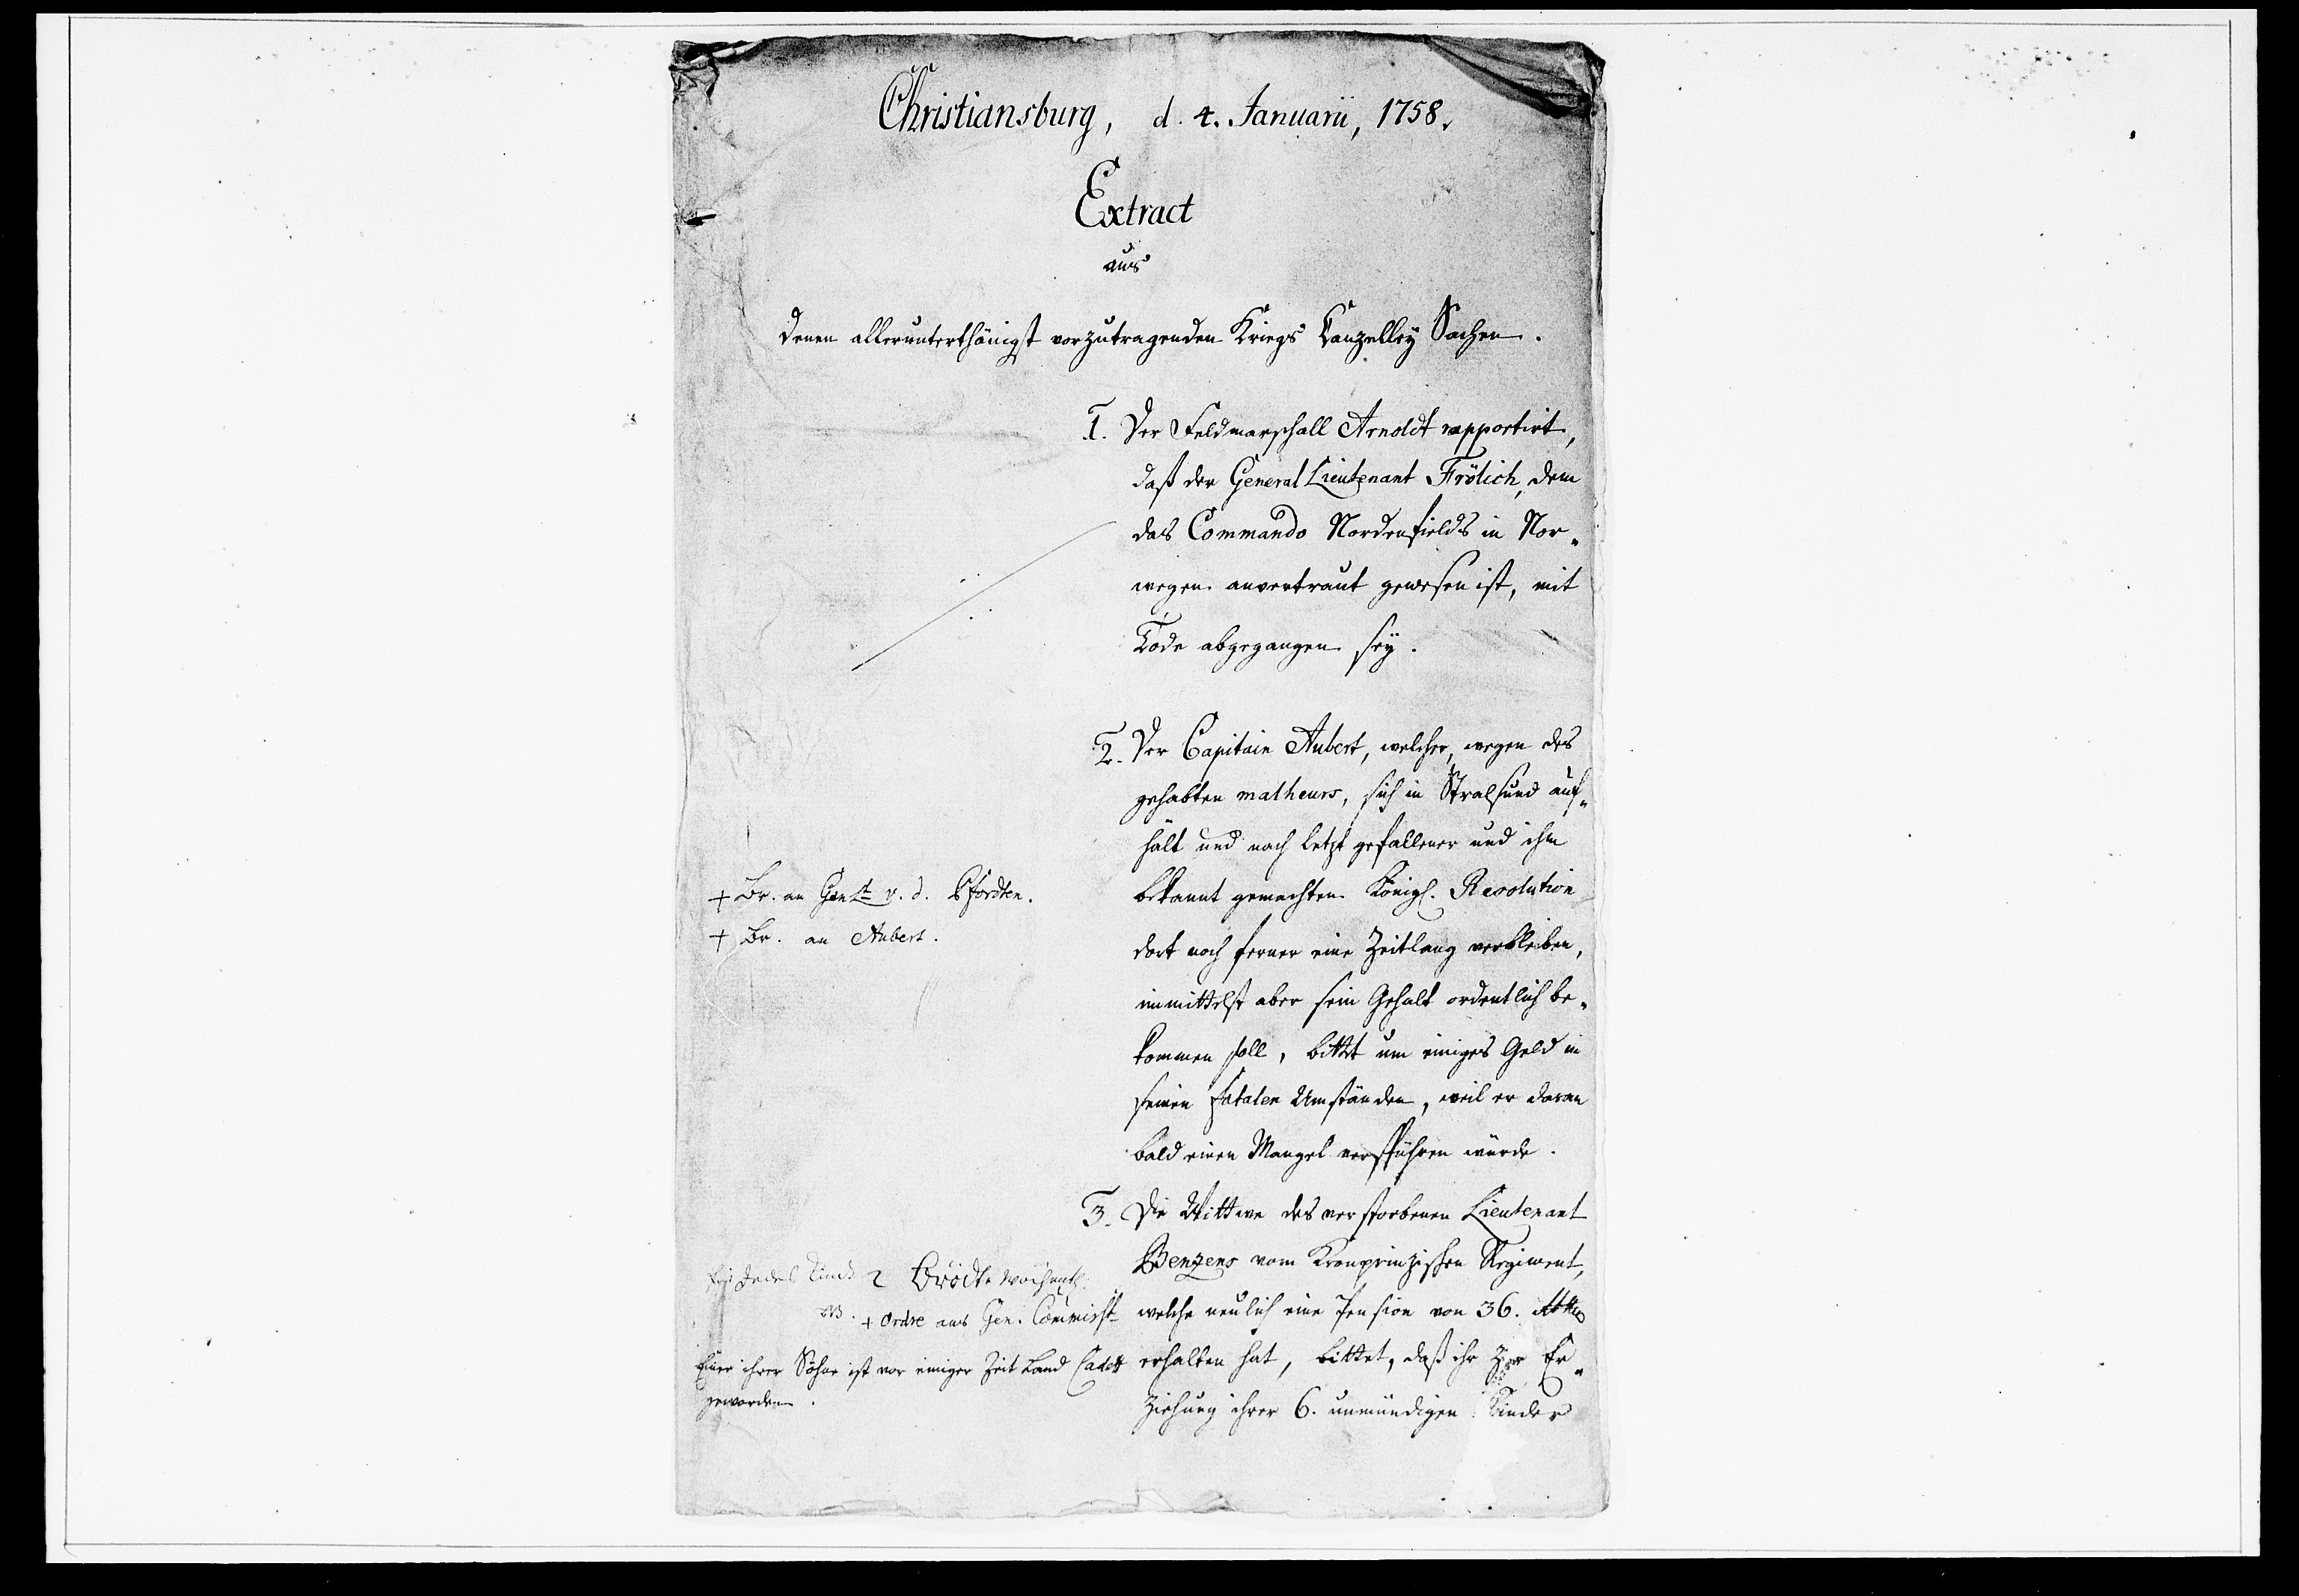 Christiansburg, d. 4. Januarii, 1758.
Extract
aus
denen allerunterthänigst vorzutragenden Kriegs Canzelley Sachen.
1. Der Feldmarschall Arnoldt rapportirt,
daß der General Lieutenant Frölich, dem
das Commando Nordenfields in Nor-
wegen anvertraut gewesen ist, mit
Tode abgegangen sey.
2. Der Capitain Aubert, welcher, wegen des
gehabten malheurs, sich in Stralsund auf-
hält und nach letzt gefallener und ihm
bekannt gemachten Königl. Resolution
dort noch ferner eine Zeitlang verbleiben,
immittelst aber sein Gehalt ordentlich be-
kommen soll, bittet um einiges Geld in
seinen fatalen Umständen, weil er daran
bald einen Mangel verspühren würde.
+ Br. an Gen Lt v. d. Pfordten.
+ Br. an Aubert.
3. Die Wittwe des verstorbenen Lieutenant
Benzens vom Kronprinzischen Regiment,
welche neulich eine Pension von 36. Rthlr
erhalten hat, bittet, daß ihr zur Er-
ziehung ihrer 6. unmündigen Kinder
jedes Kind 2 Brödte wöchentl.
+ Ordre ans Gen. Commiss.
Einer ihrer Söhne ist vor einiger Zeit Land Cadett
geworden.